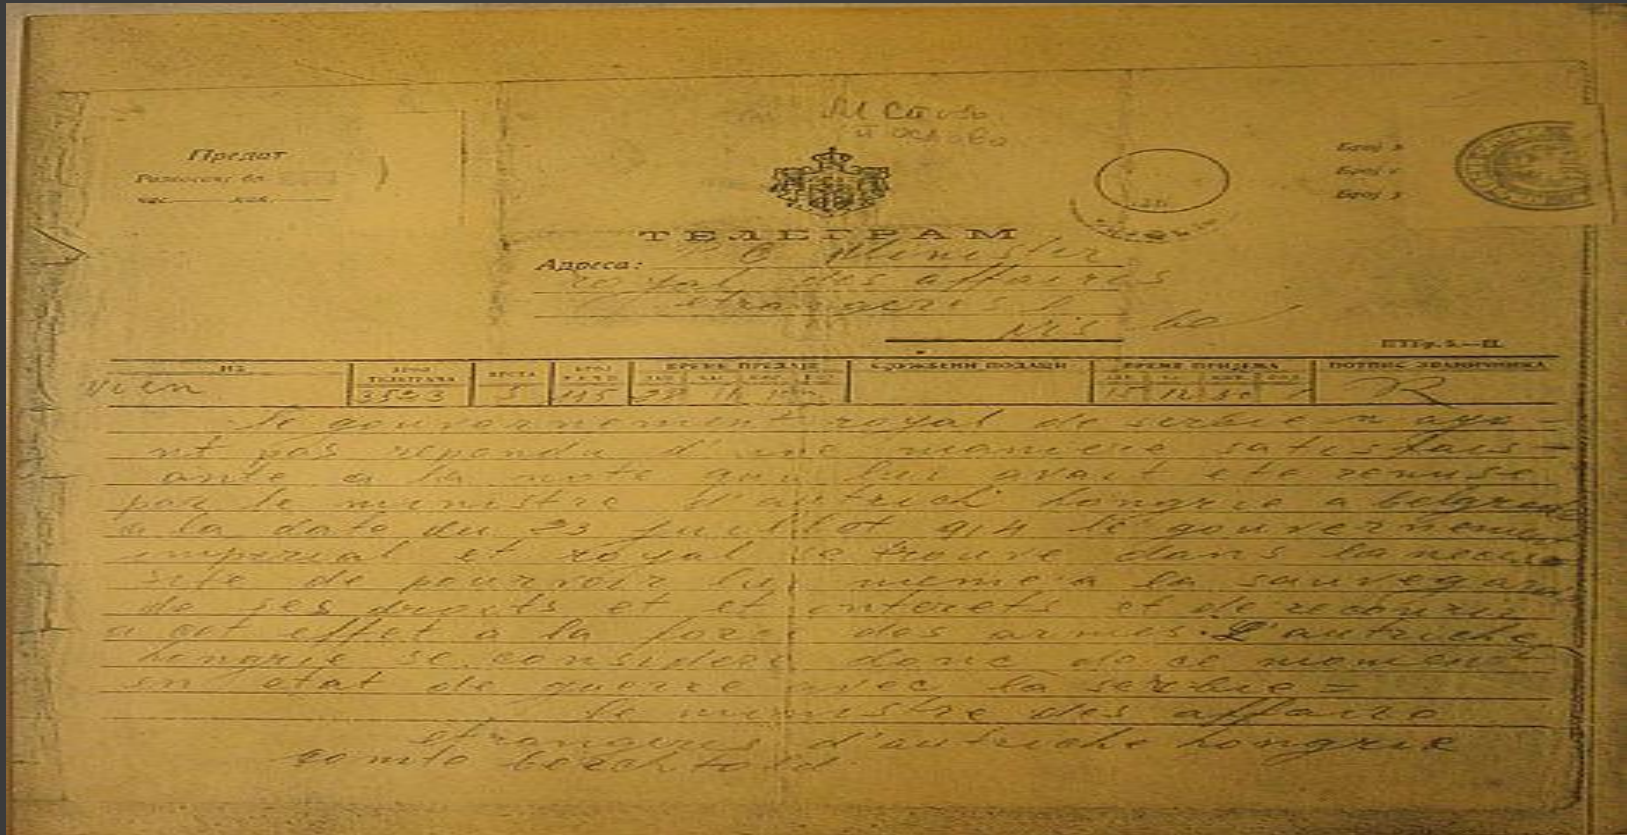 Предат
М Стовб
ТЕЛЕГРАМ
Адреса: Minister
royal des affaires
etrangeres
Nis
ИЗ БРОЈ ТЕЛЕГРАМА ВРСТА БРОЈ РЕЧИ ВРЕМЕ ПРЕДАЈЕ СЛУЖБЕНИ ПОДАЦИ ВРЕМЕ ПРИЈЕМА ПОТПИС ЗВАНИЧНИКА
Vien 3523 5 115 28
le gouvernement royal de serbie n aya=
nt pas repondu d'une maniere satisfais=
ante a la note qui lui avait ete remise
par le ministre d'autrich hongrie a belgrad
a la date du 23 juillet 914 le gouvernement
imperial et royal se trouve dans la neces
site de pourvoir lui meme a la sauvegar
de ses droits et et interets et de recourir
a cet effet a la force des armes. L'autriche
hongrie se considere donc de ce moment
en etat de guerre avec la serbie =
le ministre des affaire
etrangeres d'autriche hongrie
comte berchtold